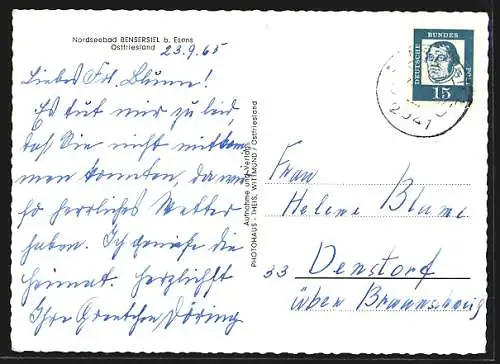 Nordseebad BENSERSIEL b. Esens
Ostfriesland
23.9.65
Liebes Frl. Blume!
Es tut mir zu leid,
daß Sie nicht mitkom-
men konnten, da wir
so herrliches Wetter
haben. Ich genieße die
Heimat. Herzlichst
Ihre Gretchen Döring
Aufnahme und Verlag:
PHOTOHAUS - THEIS, WITTMUND / Ostfriesland
DEUTSCHE BUNDES
15
2941
Frau
Helene Blume
33 Denstorf
über Braunschweig